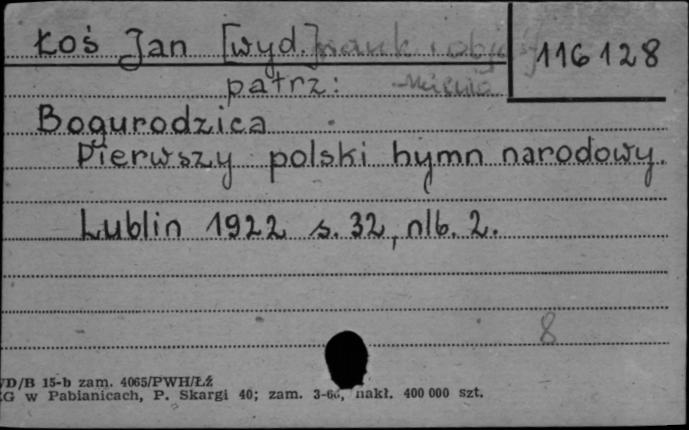 Łoś Jan [wyd.] 116128
patrz:
Bogurodzica
Pierwszy polski hymn narodowy.
Lublin 1922 s. 32, nlb. 2.
8
VD/B 15-b zam. 4065/PWH/ŁŹ
w Pabianicach, P. Skargi 40; zam. nakł. 400 000 szt.